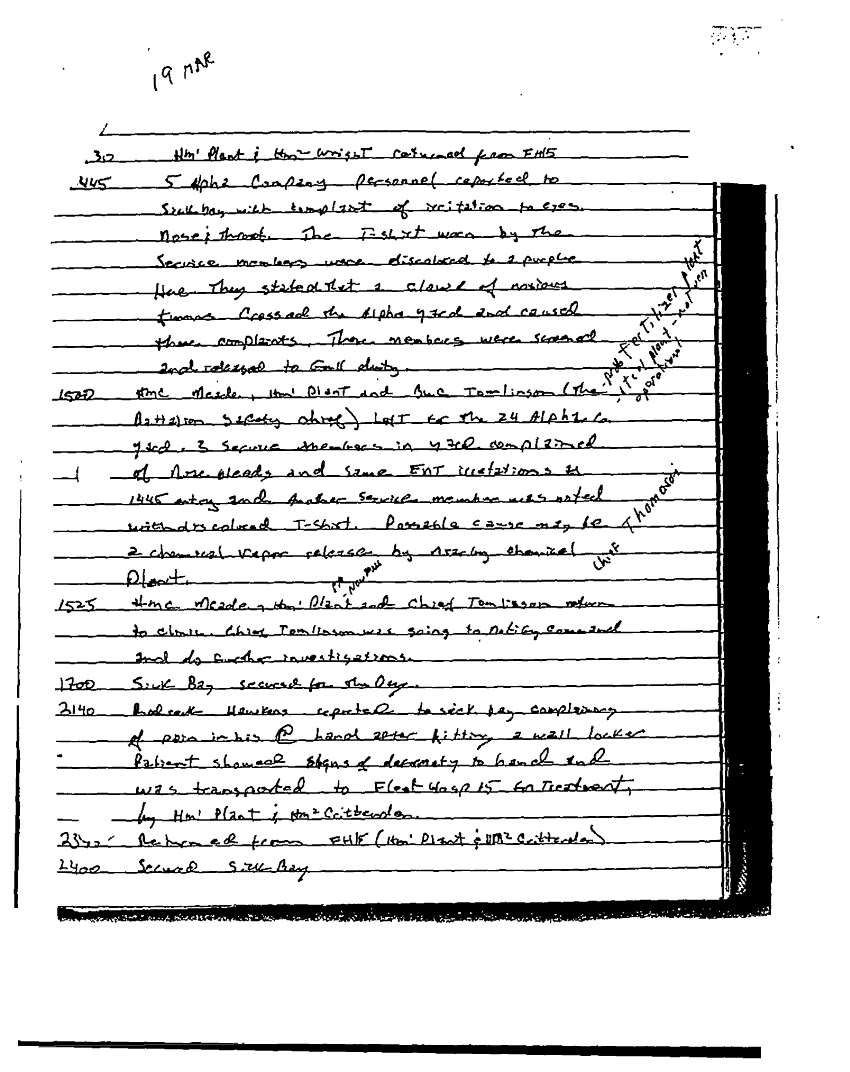 19 MAR
30 Hm1 Plant & Hm2 Wright returned from FH15
445 5 Alpha Company personnel reported to
Sick bay with complaint of irritation to eyes,
Nose & throat. The T-shirt worn by the
Service members were discolored to a purple
Hue. They stated that a cloud of noxious
fumes Crossed the Alpha yard and caused
these complaints. These members were screened
and released to full duty.
1500 Hmc Meade, Hm1 Plant and BUC Tomlinson (the
Battalion Safety chief) Left for the 24 Alpha Co.
yard. 3 Service members in yard complained
of Nose bleeds and same ENT irritations as
1445 entry and Another Service member was noted
with discolored T-Shirt. Possible cause may be
a chemical vapor release by nearby chemical
Plant.
1525 Hmc Meade, Hm1 Plant and Chief Tomlinson return
to clinic. Chief Tomlinson was going to Notify Command
and do further investigations.
1700 Sick Bay secured for the Day.
2140 Hawkins reported to sick bay complaining
of pain in his (R) hand after hitting a wall locker
Patient showed signs of deformity to hand and
was transported to Fleet Hosp 15 for Treatment,
by Hm1 Plant & Hm2 Crittenden.
Returned from FH15 (Hm1 Plant & HM2 Crittenden)
2400 Secured Sick Bay
- prob fertilizer plant
- Ital plant - not then
operational
Chief Thomason